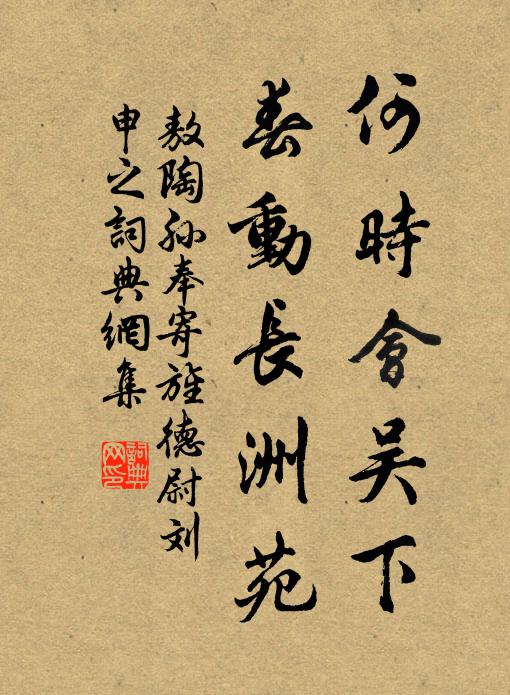 何時會吴下
春動長洲苑
敖陶孙奉寄旌德尉刘
申之詞典網集
詞典
网印